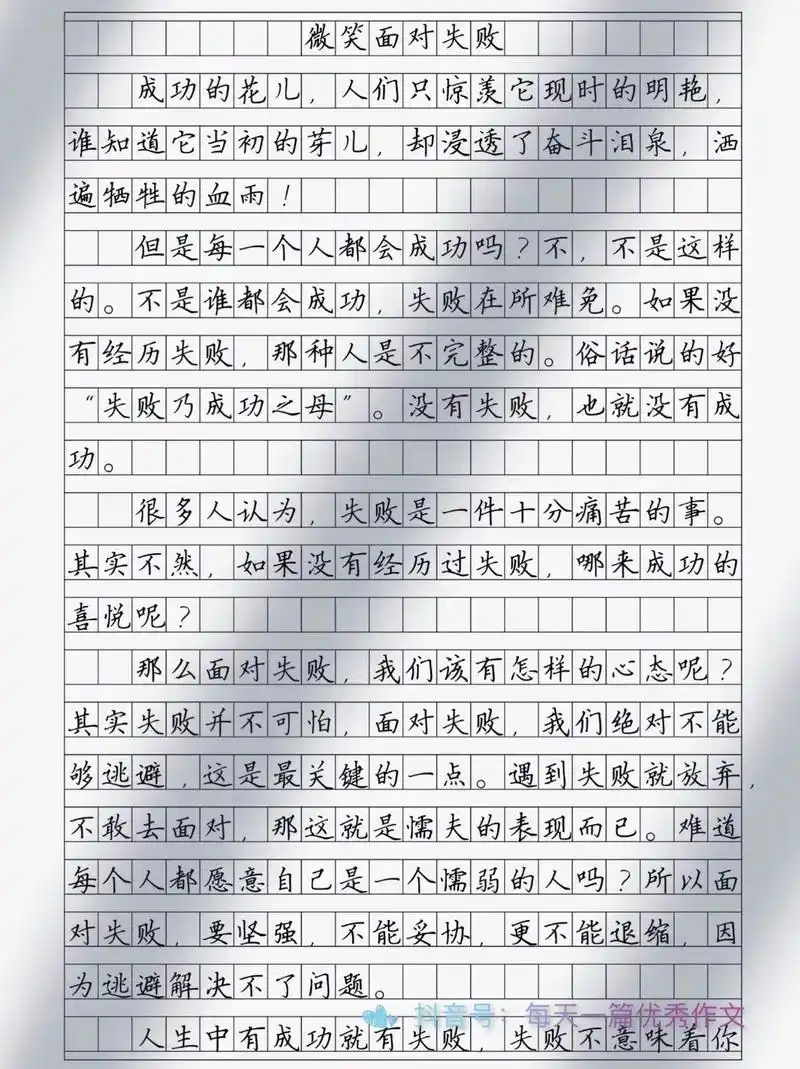 微笑面对失败
成功的花儿，人们只惊羡它现时的明艳，
谁知道它当初的芽儿，却浸透了奋斗泪泉，洒
遍牺牲的血雨！
但是每一个人都会成功吗？不，不是这样
的。不是谁都会成功，失败在所难免。如果没
有经历失败，那种人是不完整的。俗话说的好
“失败乃成功之母”。没有失败，也就没有成
功。
很多人认为，失败是一件十分痛苦的事。
其实不然，如果没有经历过失败，哪来成功的
喜悦呢？
那么面对失败，我们该有怎样的心态呢？
其实失败并不可怕，面对失败，我们绝对不能
够逃避，这是最关键的一点。遇到失败就放弃，
不敢去面对，那这就是懦夫的表现而已。难道
每个人都愿意自己是一个懦弱的人吗？所以面
对失败，要坚强，不能妥协，更不能退缩，因
为逃避解决不了问题。
抖音号：每天一篇优秀作文
人生中有成功就有失败，失败不意味着你